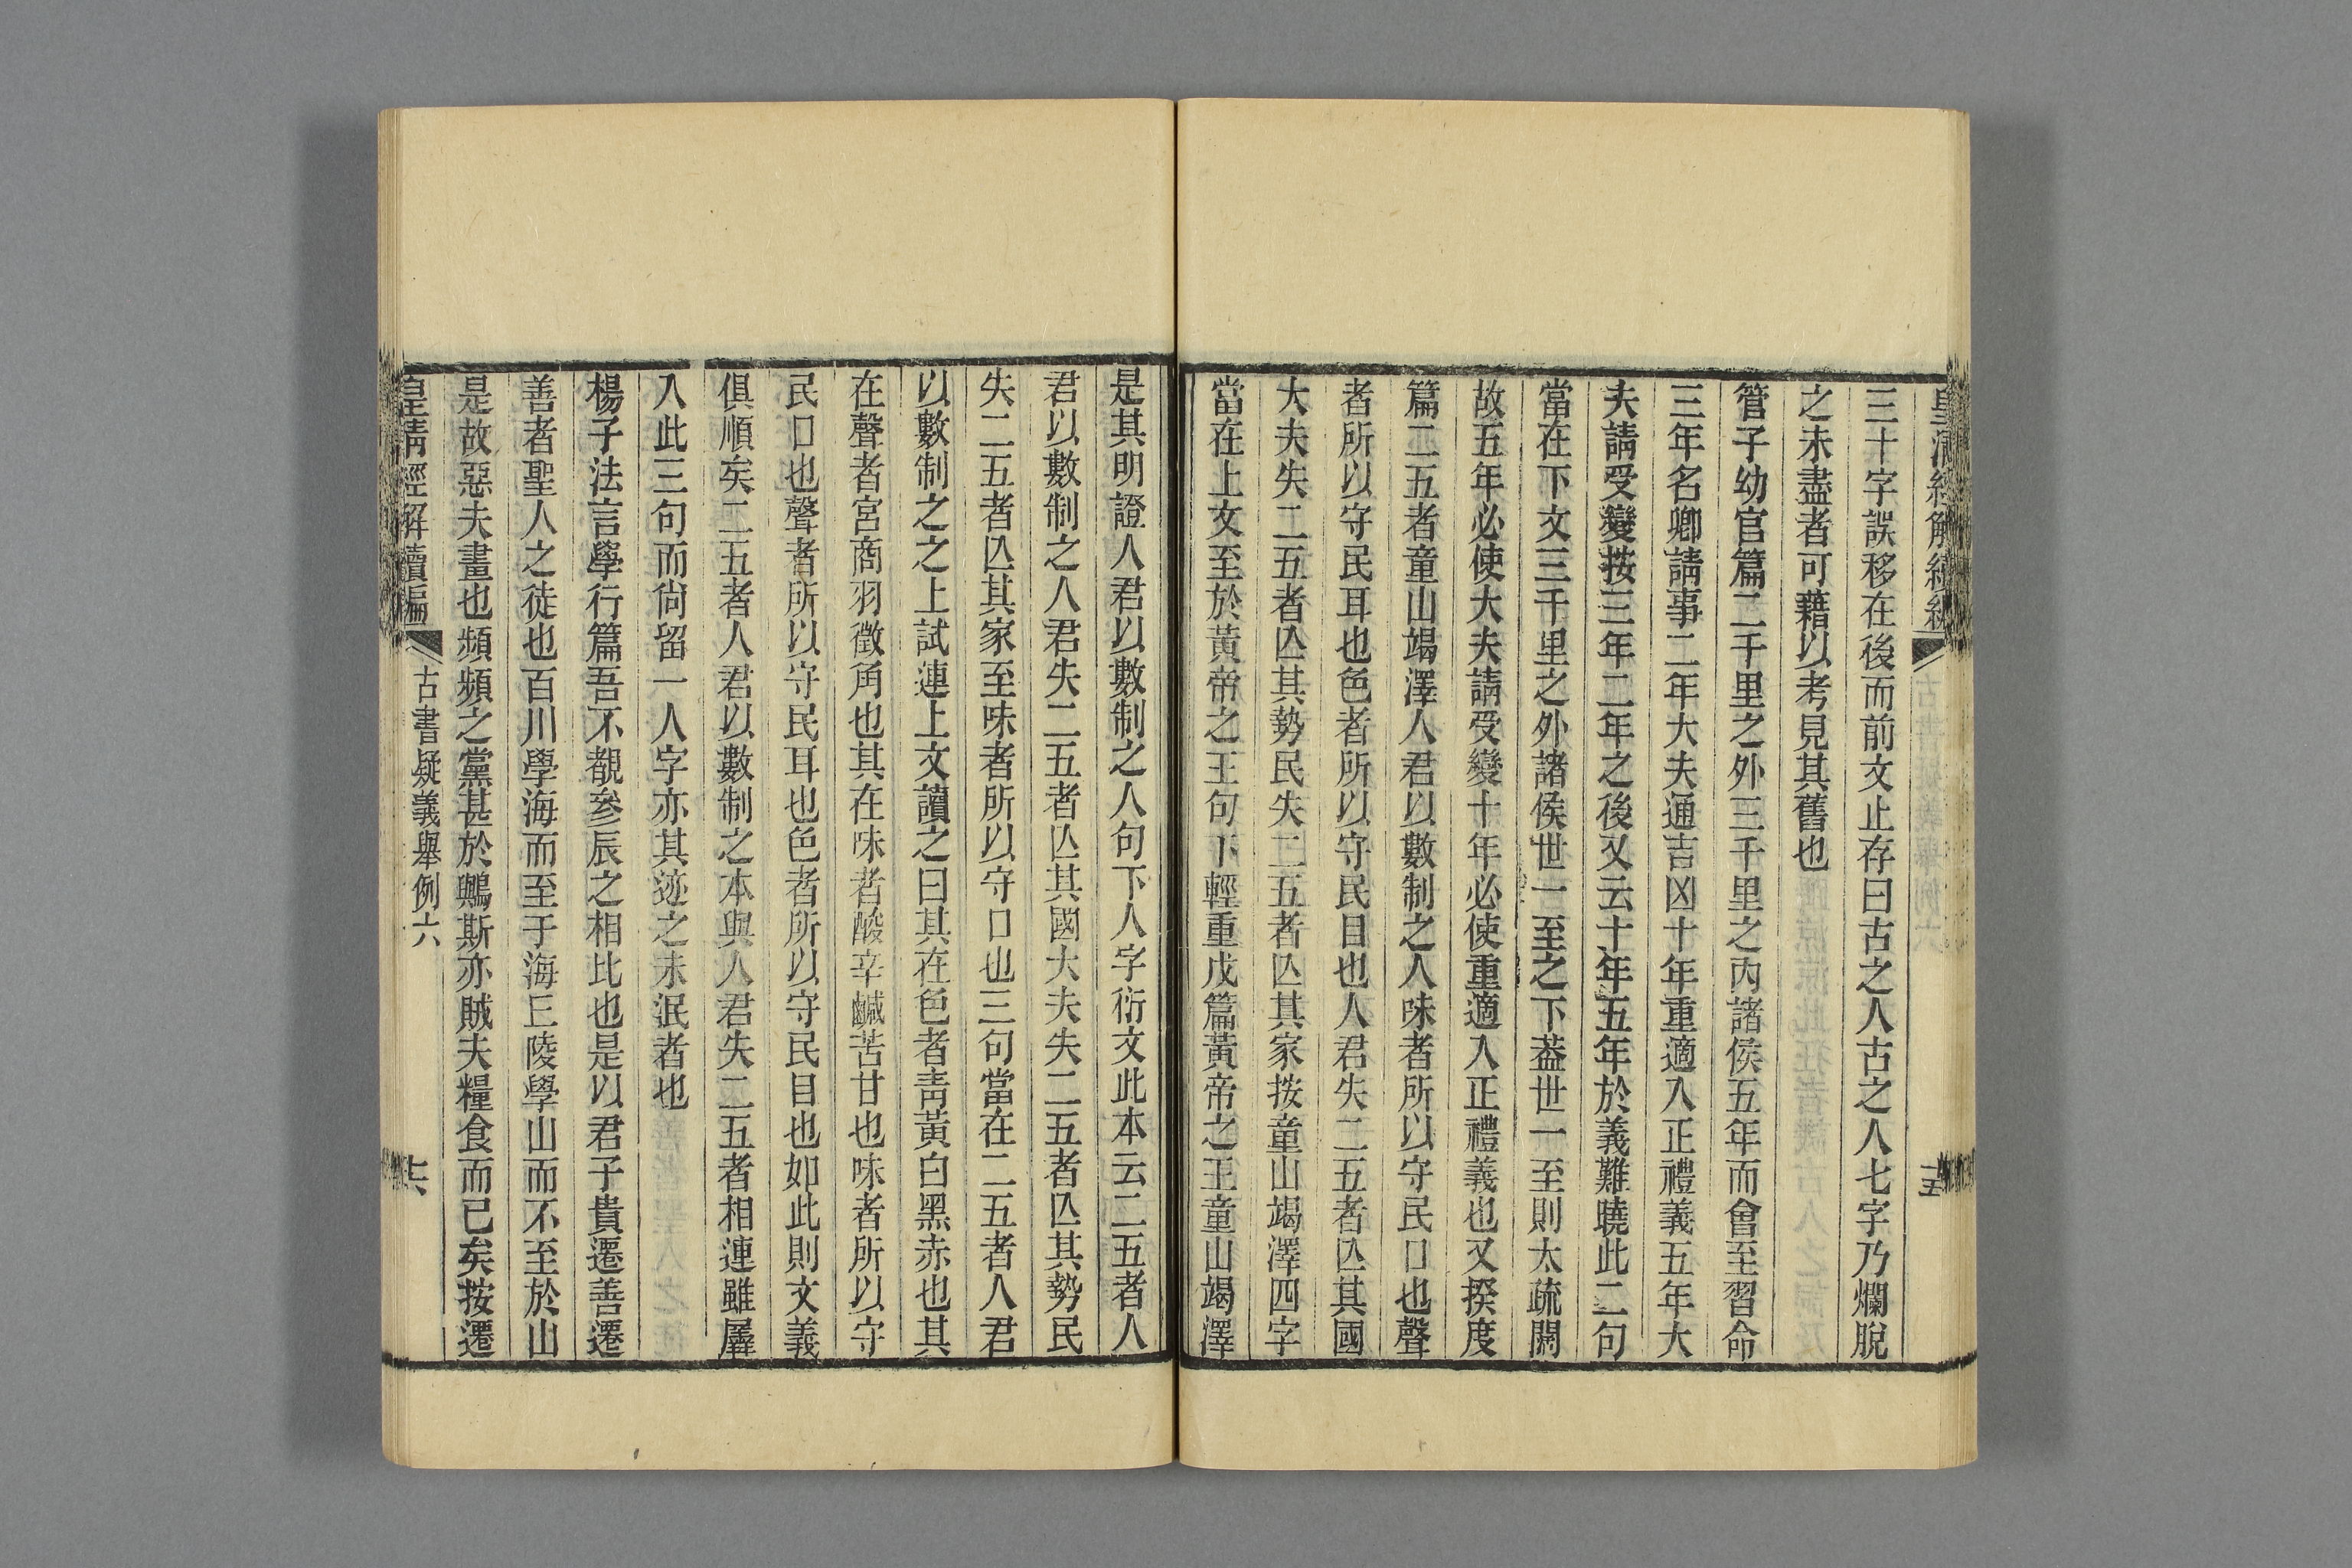 三十字誤移在後而前文止存曰古之人古之人七字乃爛脫
之未盡者可藉以考見其舊也
管子幼官篇二千里之外三千里之內諸侯五年而會至習命
三年名卿請事二年大夫通吉凶十年重適入正禮義五年大
夫請受變按三年二年之後又云十年五年於義難曉此二句
當在下文三千里之外諸侯世一至之下葢世一至則太疏闊
故五年必使大夫請受變十年必使重適入正禮義也又揆度
篇二五者童山竭澤人君以數制之人味者所以守民口也聲
者所以守民耳也色者所以守民目也人君失二五者亾其國
大夫失二五者亾其勢民失二五者亾其家按童山竭澤四字
當在上文至於黃帝之王句下輕重戊篇黃帝之王童山竭澤
是其明證人君以數制之人句下人字衍文此本云二五者人
君以數制之人君失二五者亾其國大夫失二五者亾其勢民
失二五者亾其家至味者所以守口也三句當在二五者人君
以數制之之上試連上文讀之曰其在色者靑黃白黑赤也其
在聲者宮商羽徵角也其在味者酸辛鹹苦甘也味者所以守
民口也聲者所以守民耳也色者所以守民目也如此則文義
俱順矣二五者人君以數制之本與人君失二五者相連雖羼
入此三句而尙留一人字亦其迹之未泯者也
楊子法言學行篇吾不覩參辰之相比也是以君子貴遷善遷
善者聖人之徒也百川學海而至于海丘陵學山而不至於山
是故惡夫畫也頻頻之黨甚於鸒斯亦賊夫糧食而已矣按遷
皇淸經解續編
古書疑義舉例六
十六